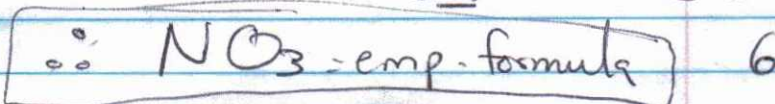 ∴ NO₃ - emp. formula 6